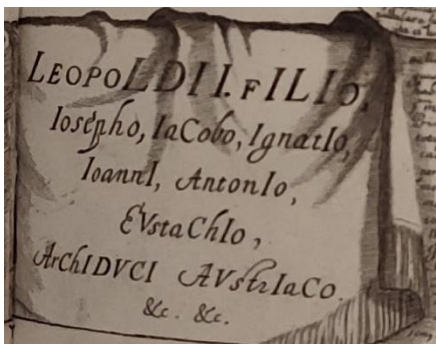 LEOPOLDI I. FILIO,
Iosepho, IaCobo, IgnatIo,
IoannI, AntonIo,
EVstaChIo,
ArChIDVCI AVstrIaCo.
&c. &c.